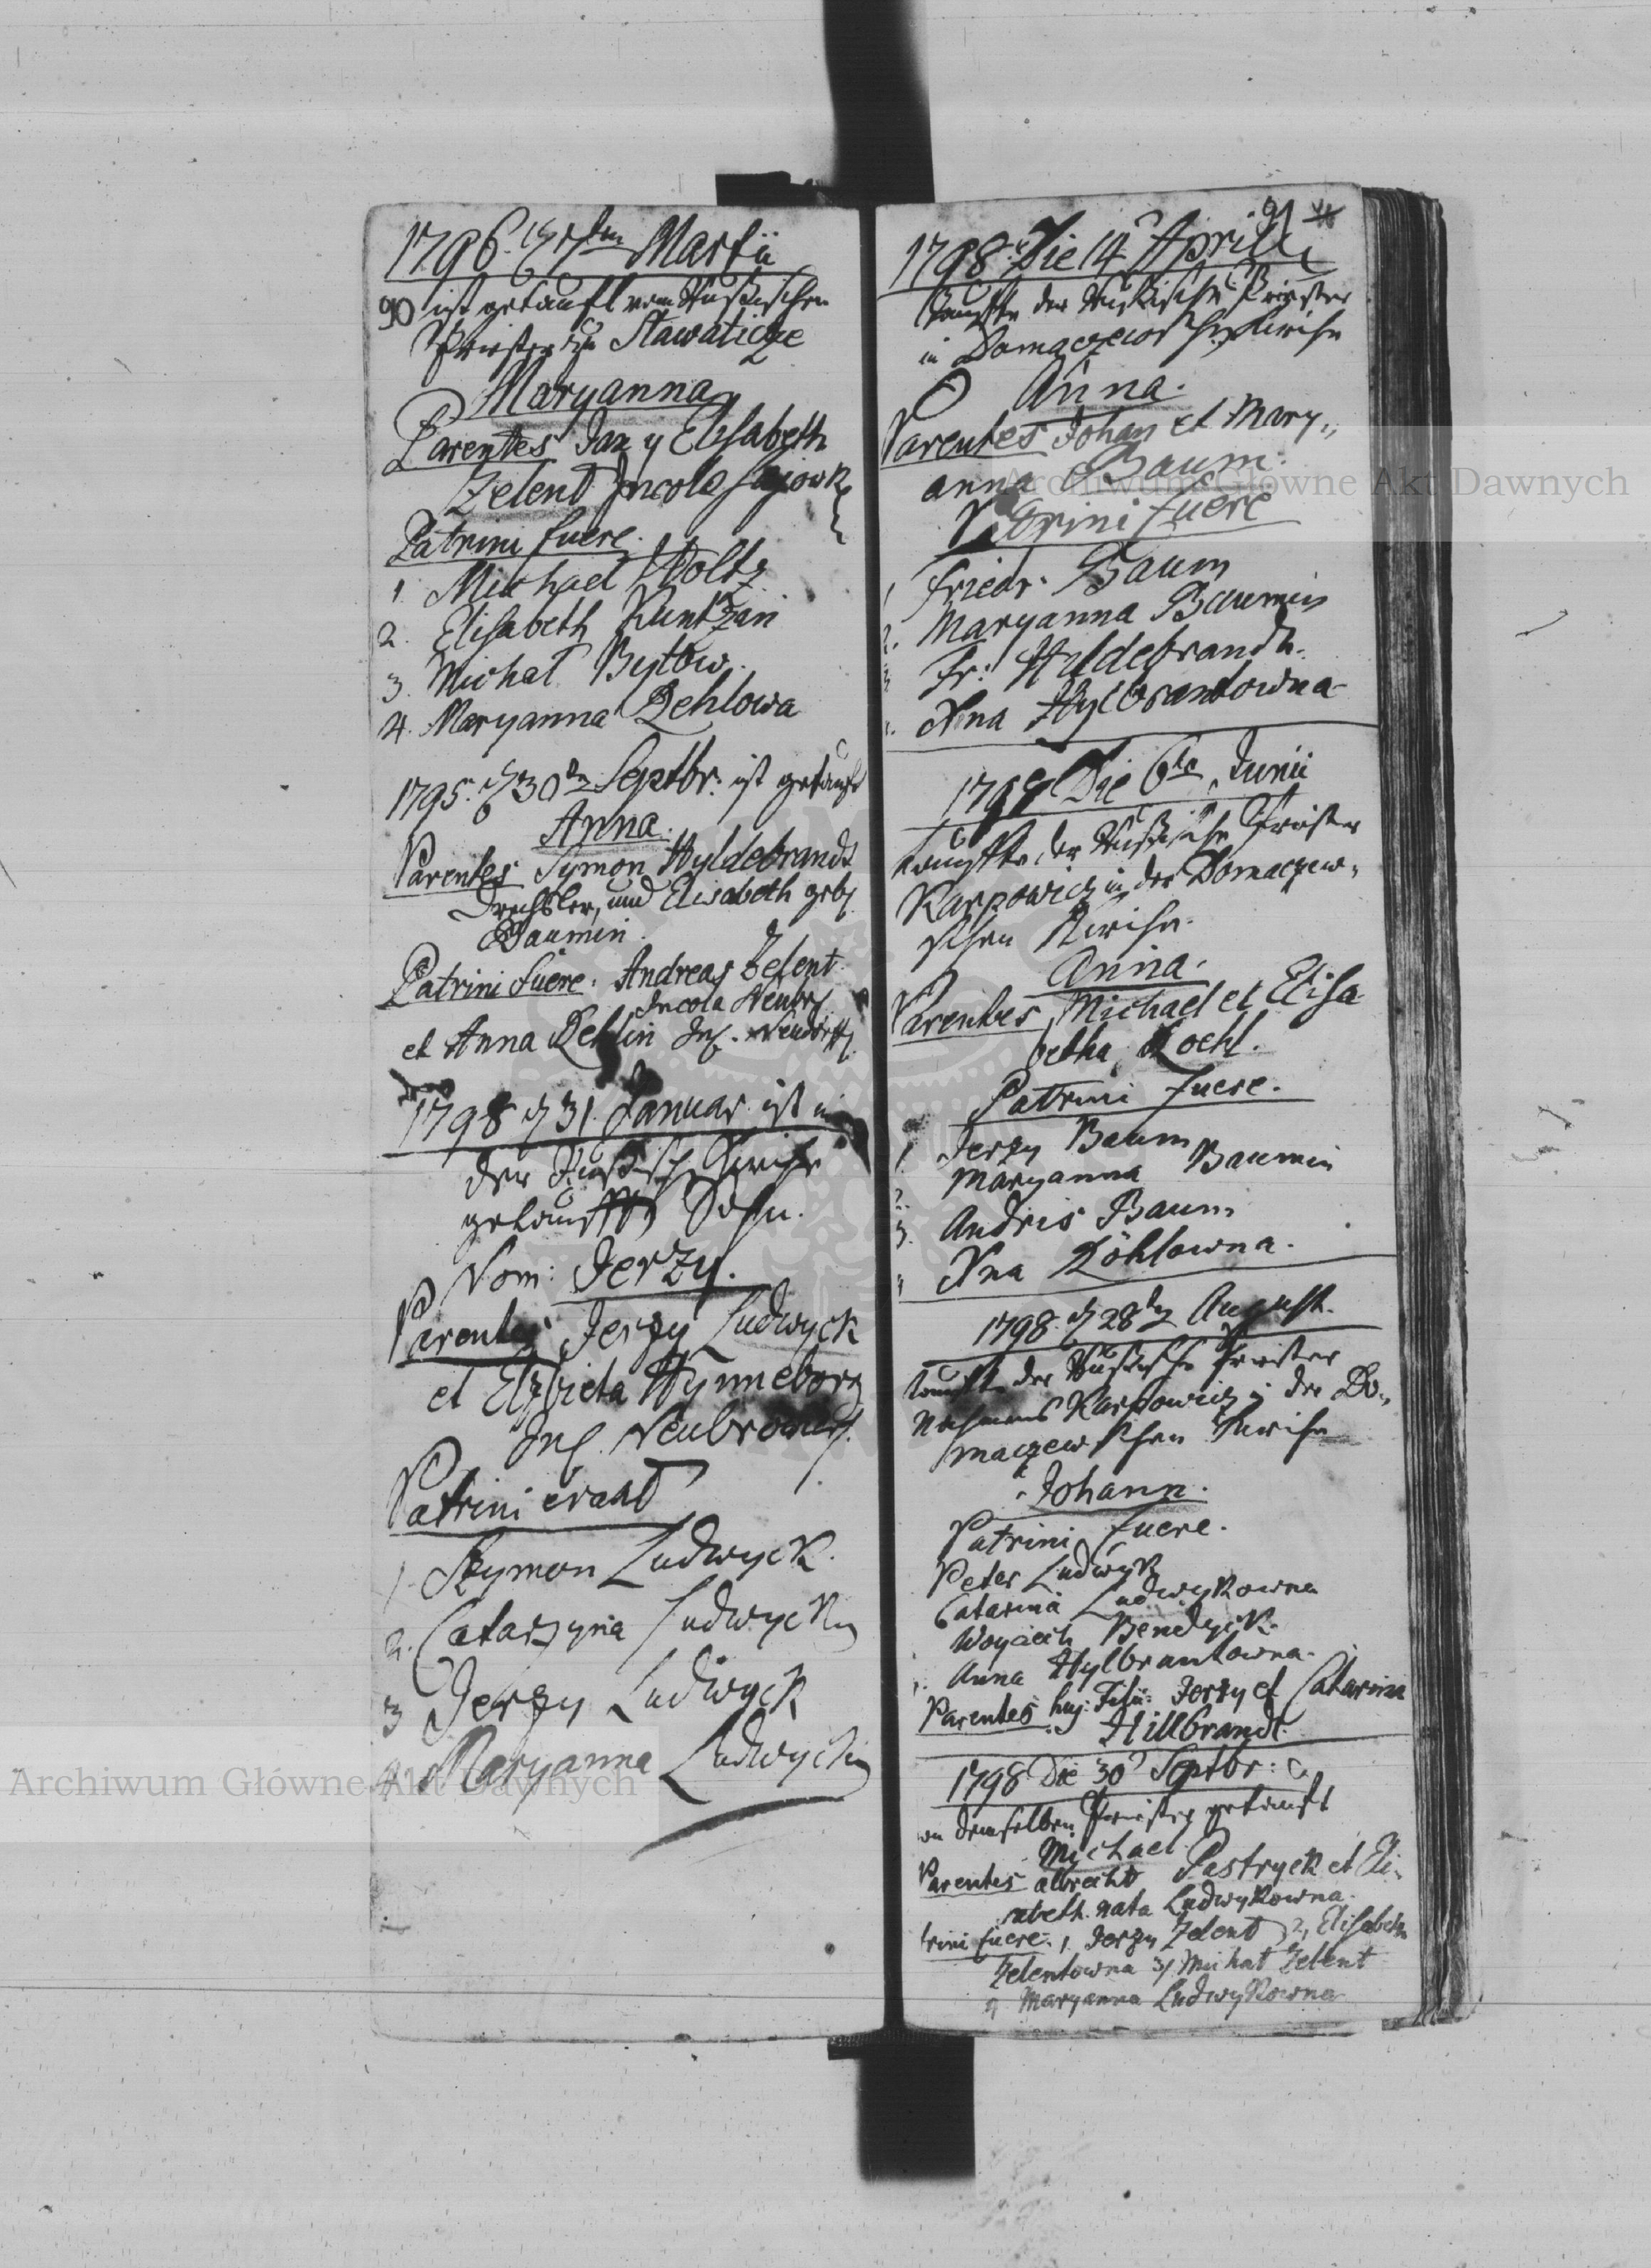 1796. d 7ten Martii
90 ist getauft vom Rußischen
Priester zu Slawaticze
Maryanna
Parentes Jan y Elisabeth
Zelent Incola
Patrini fuere.
1. Michael Holtz
2. Elisabeth Kuntzin
3. Michal Bytow.
4. Maryanna Zehlowa
1795. d 30ten Septbr: ist getauft
Anna.
Parentes Symon Hyldebrandt
Drechsler, und Elisabeth geb.
Baumin.
Patrini fuere. Andreas Zelent
Incola Neubr.
et Anna Inc. Neudorff.
1798 d 31. Januar ist in
der Rußisch Kirche
getaufft Sohn.
Nom: Jerzy.
Parentes Jerzy Ludwyck
et Elzbieta Hynneborg
Inc. Neubrow.
Patrini erant
1. Szymon Ludwyck.
2. Catarzyna Ludwyckin
3 Jerzy Ludwyck
4. Maryanna Ludwyckin
91
1798. Die 14 Aprill
Taufte der Rußische Priester
in Domaczewoschen Kirche
Anna.
Parentes Johan et Mary,,
anna Baum.
Patrini fuere
1 Friedr. Baum
2. Maryanna Baumin
3 Fr: Hildebrandt.
4. Ana Hylbrantowna
1798 Die 6te Junii
taufte der Rußische Priester
Karpowicz in der Domaczew,,
schen Kirche.
Anna.
Parentes Michael et Elisa
betha Koehl.
Patrini fuere.
1 Jerzy Baum
2 Maryanna Baumin
3. Andris Baum
4 Ana Köhlowna.
1798. d 28ten August.
tauft der Rußische Priester
Nahmens Karpowicz in der Do,,
maczewschen Kirche
Johann.
Patrini fuere.
Peter Ludwyk
Catarina Ludwykowna
Woyciech Bendyck.
Anna Hylbrantowna.
Parentes huj. Filii: Jerzy et Catarina
Hillbrandt.
1798 Die 30 Septbr:
von demselben Priester getauft
Michael
Parentes Albrecht Pastryck et Eli,,
sabeth nata Ludwykowna.
trini fuere: 1, Jerzy Zelent 2, Elisabeth
Zelentowna 3, Michal Zelent
4 Maryanna Ludwykowna
Archiwum Główne Akt Dawnych
Archiwum Główne Akt Dawnych